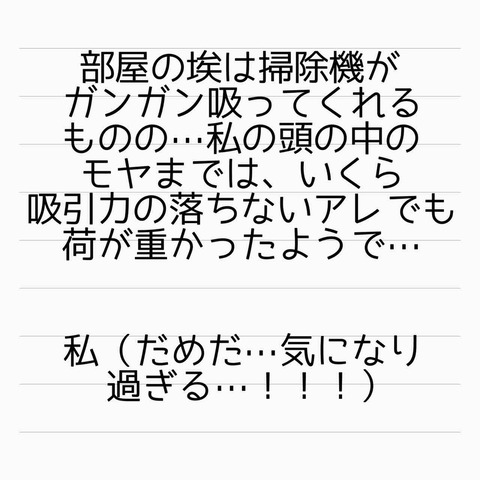 部屋の埃は掃除機が
ガンガン吸ってくれる
ものの…私の頭の中の
モヤまでは、いくら
吸引力の落ちないアレでも
荷が重かったようで…
私（だめだ…気になり
過ぎる…！！！）